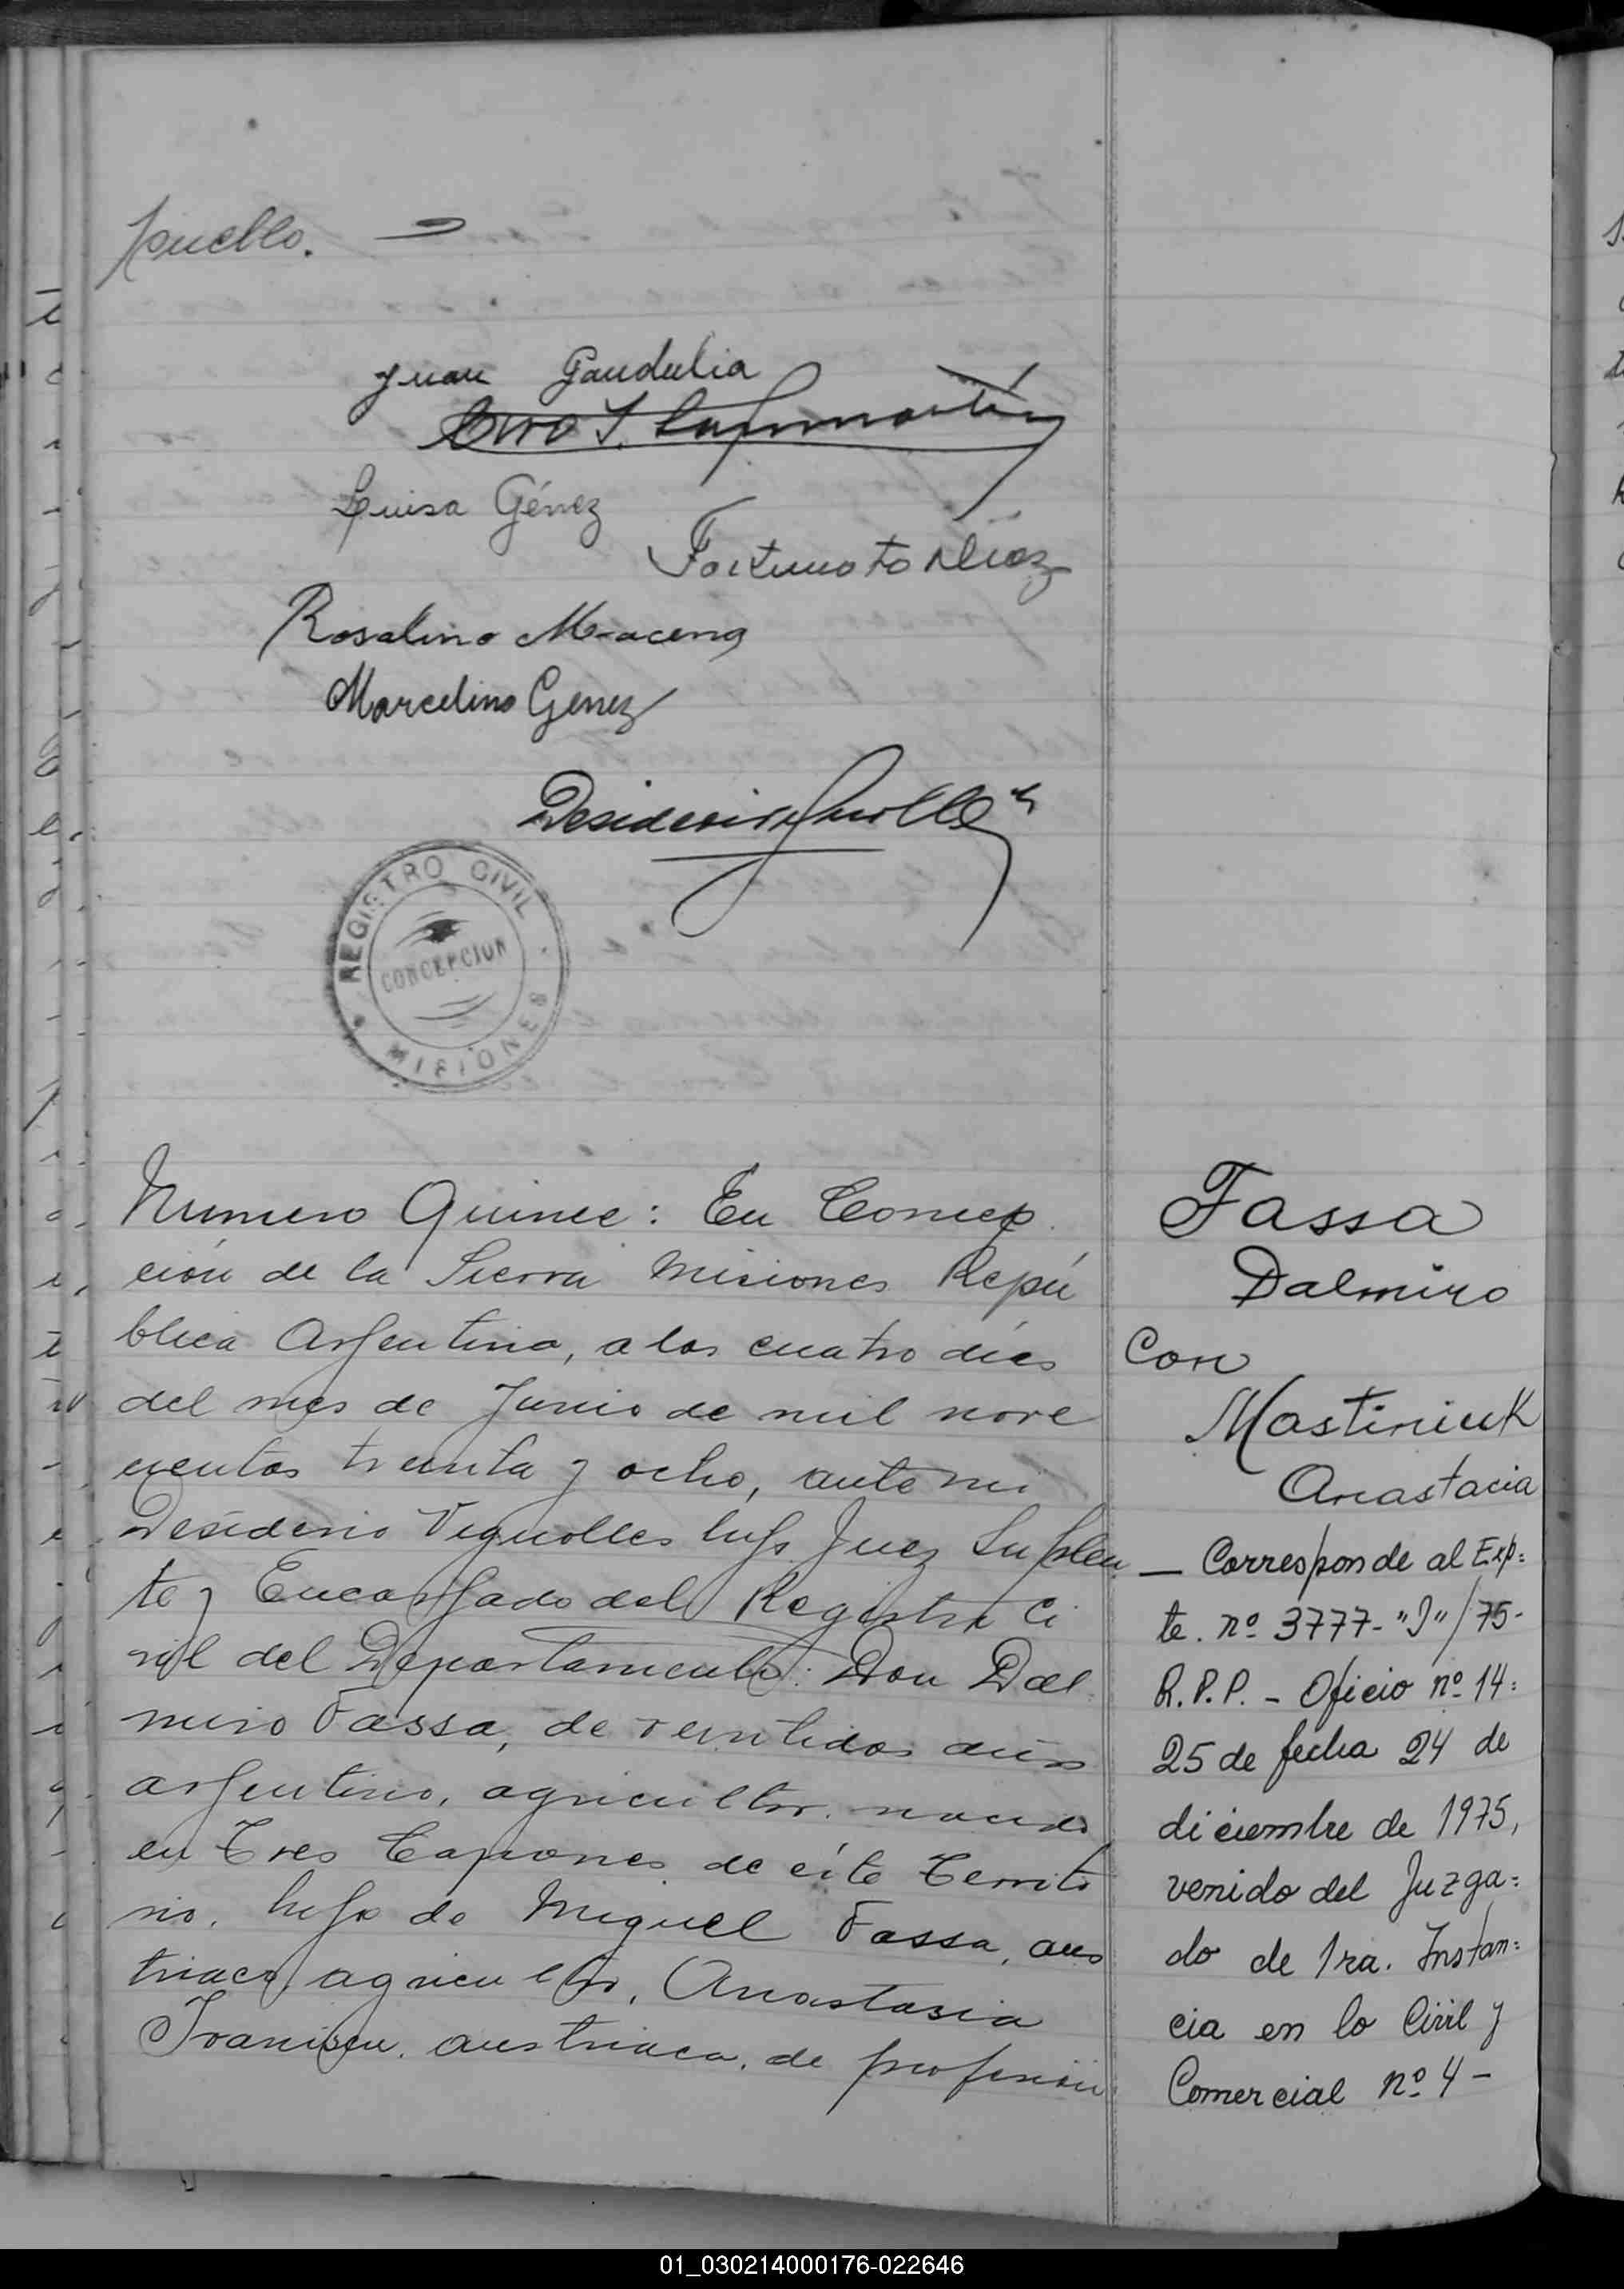 pueblo.
Juan Gaudulia
Luisa Génez
Fortunato Diaz
Rosalino
Marcelino Genez
Desiderio
REGISTRO CIVIL
CONCEPCION
MISIONES
Numero Quince: En Concep
ción de la Sierra Misiones Repú
blica Argentina, a los cuatro dias
del mes de Junio de mil nove
cientos treinta y ocho, ante mi
Desiderio Vignolles hijo Juez Suplen
te y Encargado del Registro Ci
vil del Departamento: Don Dal
miro Fassa, de veintidos años
argentino, agricultor, nacido
en Tres Capones de éste Territo
rio, hijo de Miguel Fassa, aus
triaco, agricultor, Anastasia
austriaca, de profesión
Fassa
Dalmiro
Con
Mastiniuk
Anastacia
— Corresponde al Exp:
te. nº 3777-"J"/75-
R.P.P. - Oficio nº 14:
25 de fecha 24 de
diciembre de 1975,
venido del Juzga:
do de 1ra. Instan:
cia en lo Civil y
Comercial nº 4 -
01_030214000176-022646